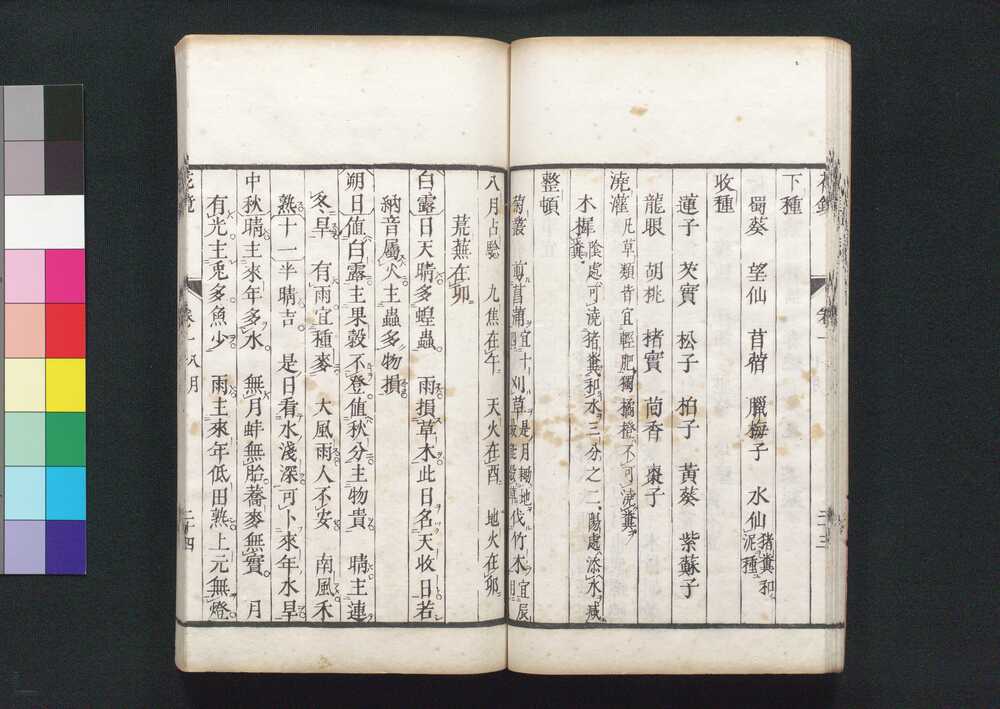 下種
蜀葵　望仙　苜蓿　臘梅子　水仙猪糞和泥種
收種
蓮子　芡實　松子　柏子　黃葵　紫蘇子
龍眼　胡桃　楮實　茴香　棗子
澆灌凡草類昔宜輕肥獨橘橙不可澆糞
木樨陰處可澆猪糞和水三分之二陽處添水减糞
整頓
菊叢　剪菖蒲宜十四　刈草是月　鋤地　伐竹木宜辰
八月占驗　九焦在午　天火在酉　地火在卯
荒蕪在卯
白露日天晴多蝗蟲　雨損草木此日名天收日若
納音屬火主蟲多物損
朔日值白露主果穀不登值秋分主物貴　晴主連
冬旱　有雨宜種麥　大風雨人不安　南風禾
熟十一半晴吉　是日看水淺深可卜來年水旱
中秋晴主來年多水　無月蚌無胎蕎麥無實　月
有光主兎多魚少　雨主來年低田熟上元無燈
花鏡　卷一八月　二十四